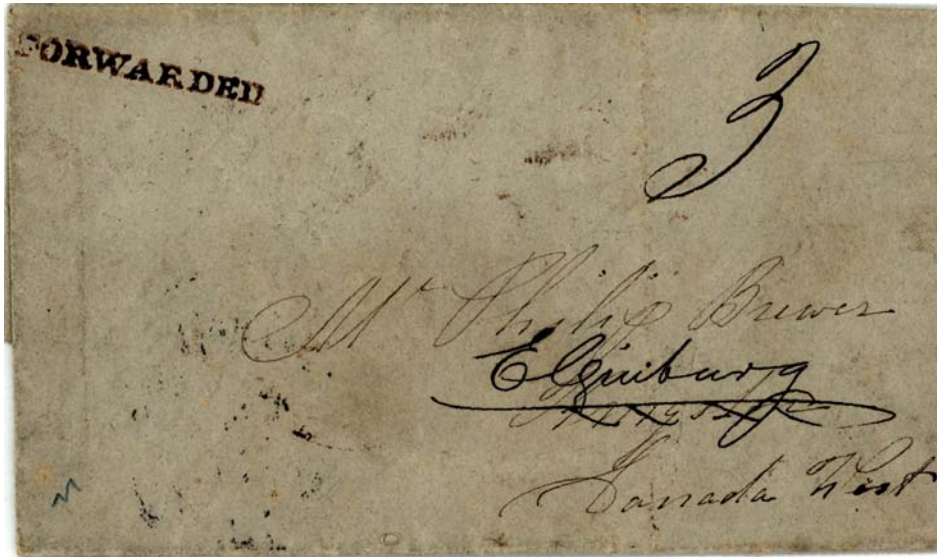 FORWARDED
3
Mr Philip Brewer
Elginburg
Kingston
Canada West